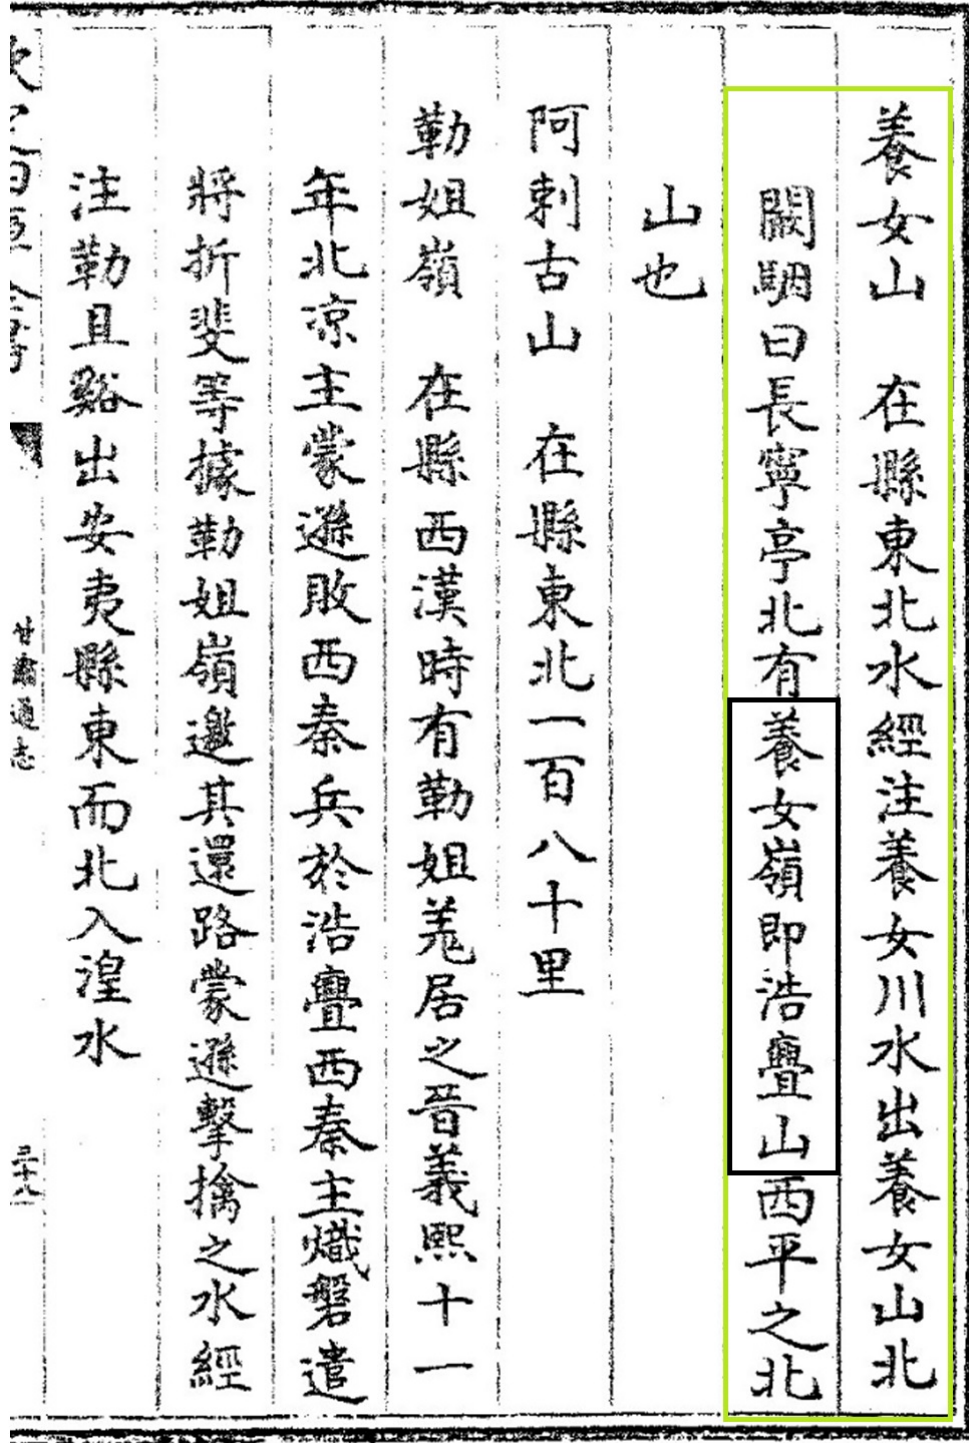 養女山　在縣東北水經注養女川水出養女山北
闞駰曰長寧亭北有養女嶺即浩亹山西平之北
山也
阿剌古山　在縣東北一百八十里
勒姐嶺　在縣西漢時有勒姐羌居之晉義熙十一
年北涼主蒙遜敗西秦兵於浩亹西秦主熾磐遣
將折斐等據勒姐嶺邀其還路蒙遜擊擒之水經
注勒且谿出安夷縣東而北入湟水
甘肅通志
三十八